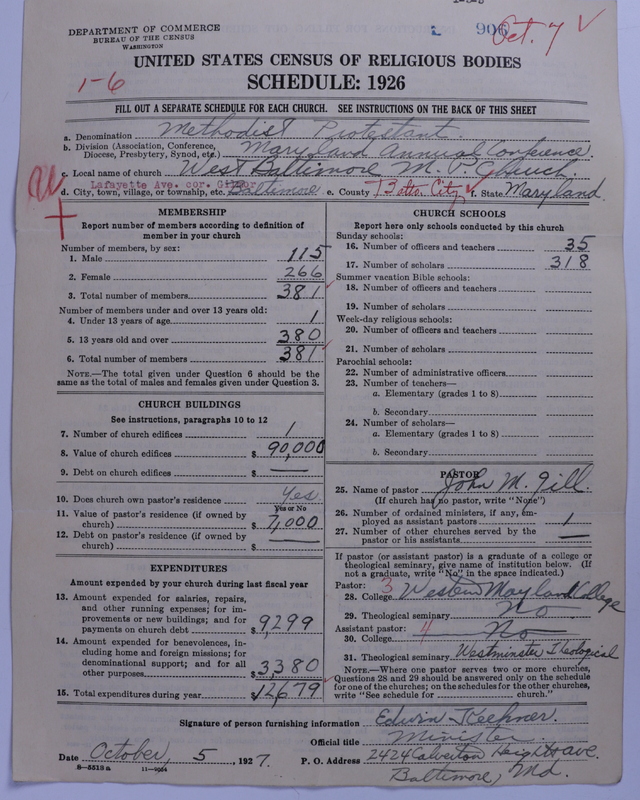 906
Oct. 7 ✓
DEPARTMENT OF COMMERCE
BUREAU OF THE CENSUS
WASHINGTON
UNITED STATES CENSUS OF RELIGIOUS BODIES
1-6
SCHEDULE: 1926
FILL OUT A SEPARATE SCHEDULE FOR EACH CHURCH. SEE INSTRUCTIONS ON THE BACK OF THIS SHEET
a. Denomination Methodist Protestant
b. Division (Association, Conference, Diocese, Presbytery, Synod, etc.) Maryland Annual Conference.
c. Local name of church West Baltimore M. P. Church.
Lafayette Ave. cor. Gilmor
d. City, town, village, or township, etc. Baltimore e. County City f. State Maryland.
MEMBERSHIP
Report number of members according to definition of
member in your church
Number of members, by sex:
1. Male 115
2. Female 266
3. Total number of members 381
Number of members under and over 13 years old:
4. Under 13 years of age 1
5. 13 years old and over 380
6. Total number of members 381
NOTE.—The total given under Question 6 should be the
same as the total of males and females given under Question 3.
CHURCH BUILDINGS
See instructions, paragraphs 10 to 12
7. Number of church edifices 1
8. Value of church edifices $ 90,000
9. Debt on church edifices $ —
10. Does church own pastor's residence Yes
Yes or No
11. Value of pastor's residence (if owned by
church) $ 7,000
12. Debt on pastor's residence (if owned by
church) $ —
EXPENDITURES
Amount expended by your church during last fiscal year
13. Amount expended for salaries, repairs,
and other running expenses; for im-
provements or new buildings; and for
payments on church debt $ 9,299
14. Amount expended for benevolences, in-
cluding home and foreign missions; for
denominational support; and for all
other purposes $ 3,380
15. Total expenditures during year $ 12,679
CHURCH SCHOOLS
Report here only schools conducted by this church
Sunday schools:
16. Number of officers and teachers 35
17. Number of scholars 318
Summer vacation Bible schools:
18. Number of officers and teachers
19. Number of scholars
Week-day religious schools:
20. Number of officers and teachers
21. Number of scholars
Parochial schools:
22. Number of administrative officers
23. Number of teachers—
a. Elementary (grades 1 to 8)
b. Secondary
24. Number of scholars—
a. Elementary (grades 1 to 8)
b. Secondary
PASTOR
25. Name of pastor John M. Gill.
(If church has no pastor, write "None")
26. Number of ordained ministers, if any, em-
ployed as assistant pastors 1
27. Number of other churches served by the
pastor or his assistants —
If pastor (or assistant pastor) is a graduate of a college or
theological seminary, give name of institution below. (If
not a graduate, write "No" in the space indicated.)
Pastor: 3
28. College Western Maryland College
29. Theological seminary No
Assistant pastor: 4
30. College No
31. Theological seminary Westminster Theological
NOTE.—Where one pastor serves two or more churches,
Questions 28 and 29 should be answered only on the schedule
for one of the churches; on the schedules for the other churches,
write "See schedule for church."
Signature of person furnishing information Edwin
Official title Minister
Date October 5, 1927. P. O. Address 2424 Calverton Heights ave.
Baltimore, Md.
8-5513a 11-9034